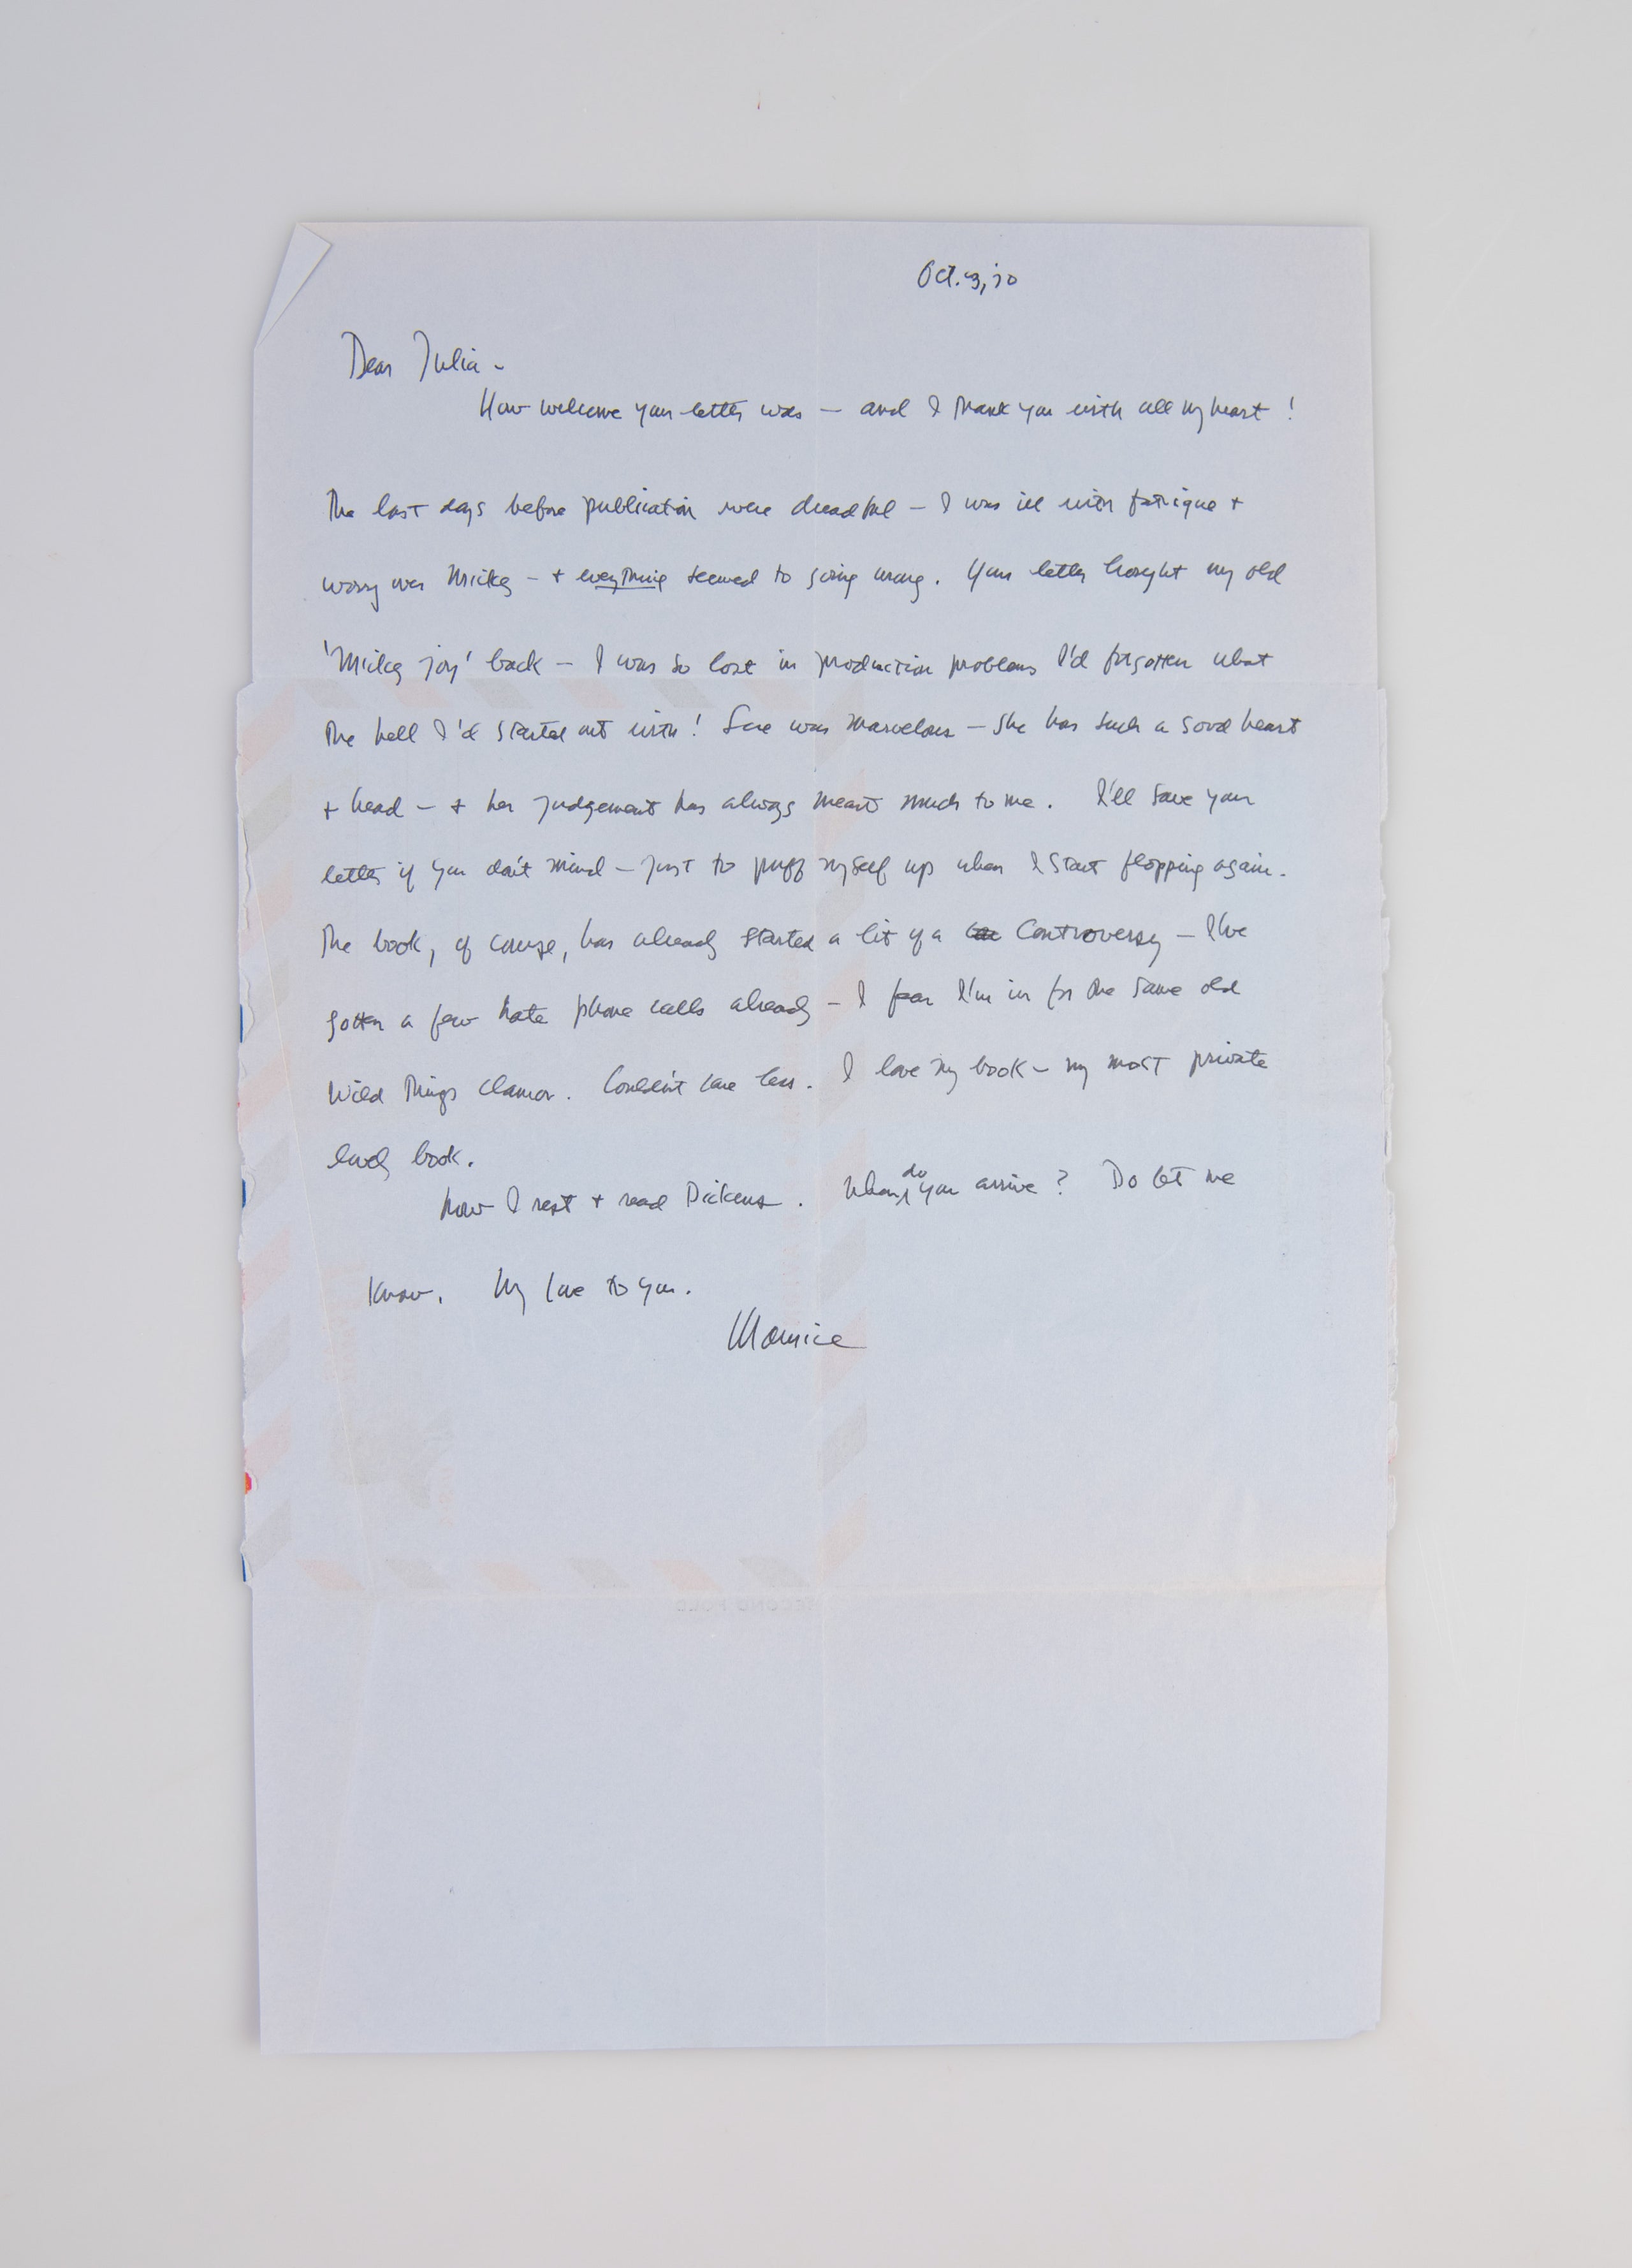 Oct. 3, 70
Dear Julia –
How welcome your letter was — and I thank you with all my heart!
The last days before publication were dreadful — I was ill with fatigue +
worry over Mickey — + everything seemed to going wrong. Your letter brought my old
'Mickey joy' back — I was so lost in production problems I'd forgotten what
the hell I'd started out with! Sue was marvelous — she has such a good heart
+ head — + her judgement has always meant much to me. I'll save your
letter if you don't mind — just to puff myself up when I start flopping again.
The book, of course, has already started a bit of a controversy — I've
gotten a few hate phone calls already — I fear I'm in for the same old
Wild Things clamor. Couldn't care less. I love my book — my most private
lovely book.
Now I rest + read Dickens. When do you arrive? Do let me
know. My love to you.
Maurice
SECOND FOLD